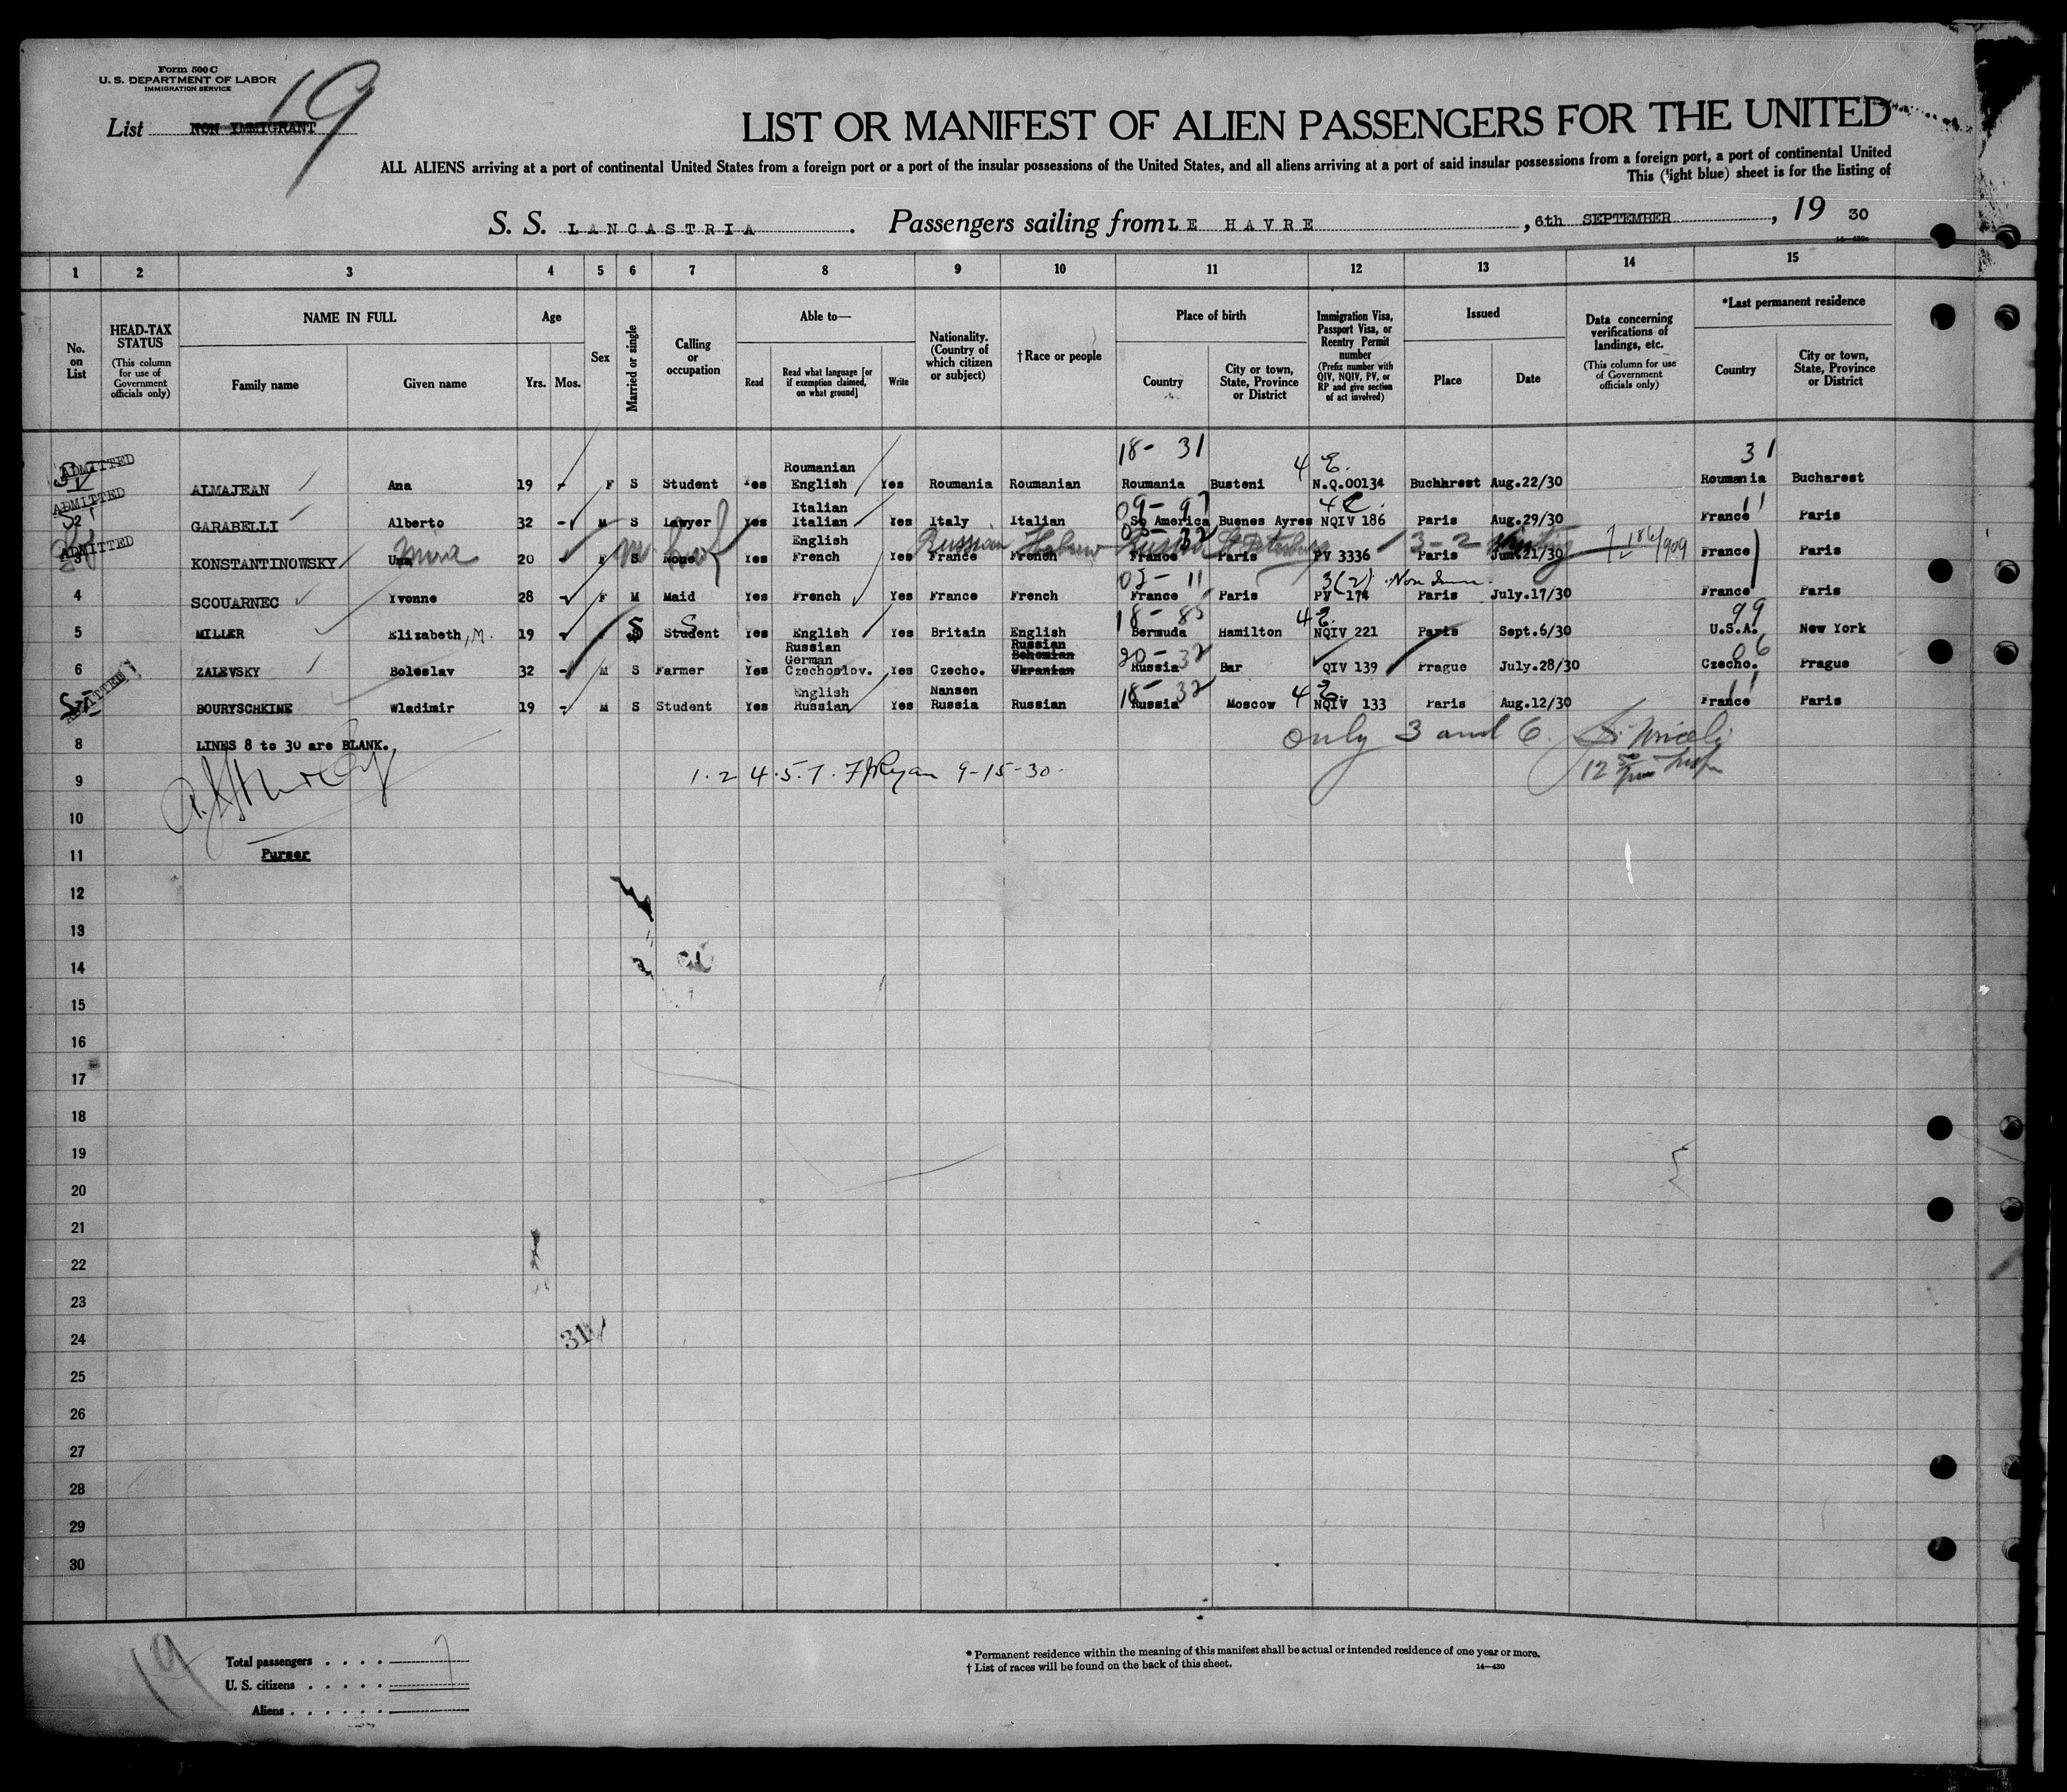 Form 500 C
U. S. DEPARTMENT OF LABOR
IMMIGRATION SERVICE
List NON IMMIGRANT 19
LIST OR MANIFEST OF ALIEN PASSENGERS FOR THE UNITED
ALL ALIENS arriving at a port of continental United States from a foreign port or a port of the insular possessions of the United States, and all aliens arriving at a port of said insular possessions from a foreign port, a port of continental United
This (light blue) sheet is for the listing of
S. S. LANCASTRIA. Passengers sailing from LE HAVRE, 6th SEPTEMBER, 19 30
1 2 3 4 5 6 7 8 9 10 11 12 13 14 15
No. on List
HEAD-TAX STATUS (This column for use of Government officials only)
NAME IN FULL
Family name
Given name
Age
Yrs. Mos.
Sex
Married or single
Calling or occupation
Able to—
Read
Read what language [or if exemption claimed, on what ground]
Write
Nationality. (Country of which citizen or subject)
†Race or people
Place of birth
Country
City or town, State, Province or District
Immigration Visa, Passport Visa, or Reentry Permit number (Prefix number with QIV, NQIV, PV, or RP and give section of act involved)
Issued
Place
Date
Data concerning verifications of landings, etc. (This column for use of Government officials only)
*Last permanent residence
Country
City or town, State, Province or District
18- 31 31
ADMITTED Roumanian 4 E.
ALMAJEAN Ana 19 - F S Student Yes English Yes Roumania Roumanian Roumania Busteni N.Q.00134 Bucharest Aug.22/30 Roumania Bucharest
ADMITTED Italian 09- 97 11
2 GARABELLI Alberto 32 - M S Lawyer Yes Italian Yes Italy Italian So America Buenos Ayres NQIV 186 Paris Aug.29/30 France Paris
ADMITTED Mina English Russian Hebrew Russia St Petersburg 3-2
3 KONSTANTINOWSKY 20 F S None Yes French Yes France French France Paris PV 3336 Paris Jun.21/30 France Paris
3(2)
4 SCOUARNEC Yvonne 28 F M Maid Yes French Yes France French France Paris PV 174 Paris July.17/30 France Paris
18- 85 4 E. 99
5 MILLER Elizabeth, M. 19 S Student Yes English Yes Britain English Bermuda Hamilton NQIV 221 Paris Sept.6/30 U.S.A. New York
Russian German Russian Bohemian 20- 32 06
6 ZALEVSKY Boleslav 32 - M S Farmer Yes Czechoslov. Yes Czecho. Ukranian Russia Bar QIV 139 Prague July.28/30 Czecho. Prague
ADMITTED English Nansen 18- 32 4 E. 11
BOURYSCHKINE Wladimir 19 - M S Student Yes Russian Yes Russia Russian Russia Moscow NQIV 133 Paris Aug.12/30 France Paris
8 LINES 8 to 30 are BLANK. only 3 and 6.
9 1. 2 4. 5. 7. FJRyan 9-15-30.
10
11 Purser
12
13
14
15
16
17
18
19
20
21
22
23
24 31
25
26
27
28
29
30
19
Total passengers . . . . 7
U. S. citizens . . . . .
Aliens . . . . . .
* Permanent residence within the meaning of this manifest shall be actual or intended residence of one year or more.
† List of races will be found on the back of this sheet. 14—430